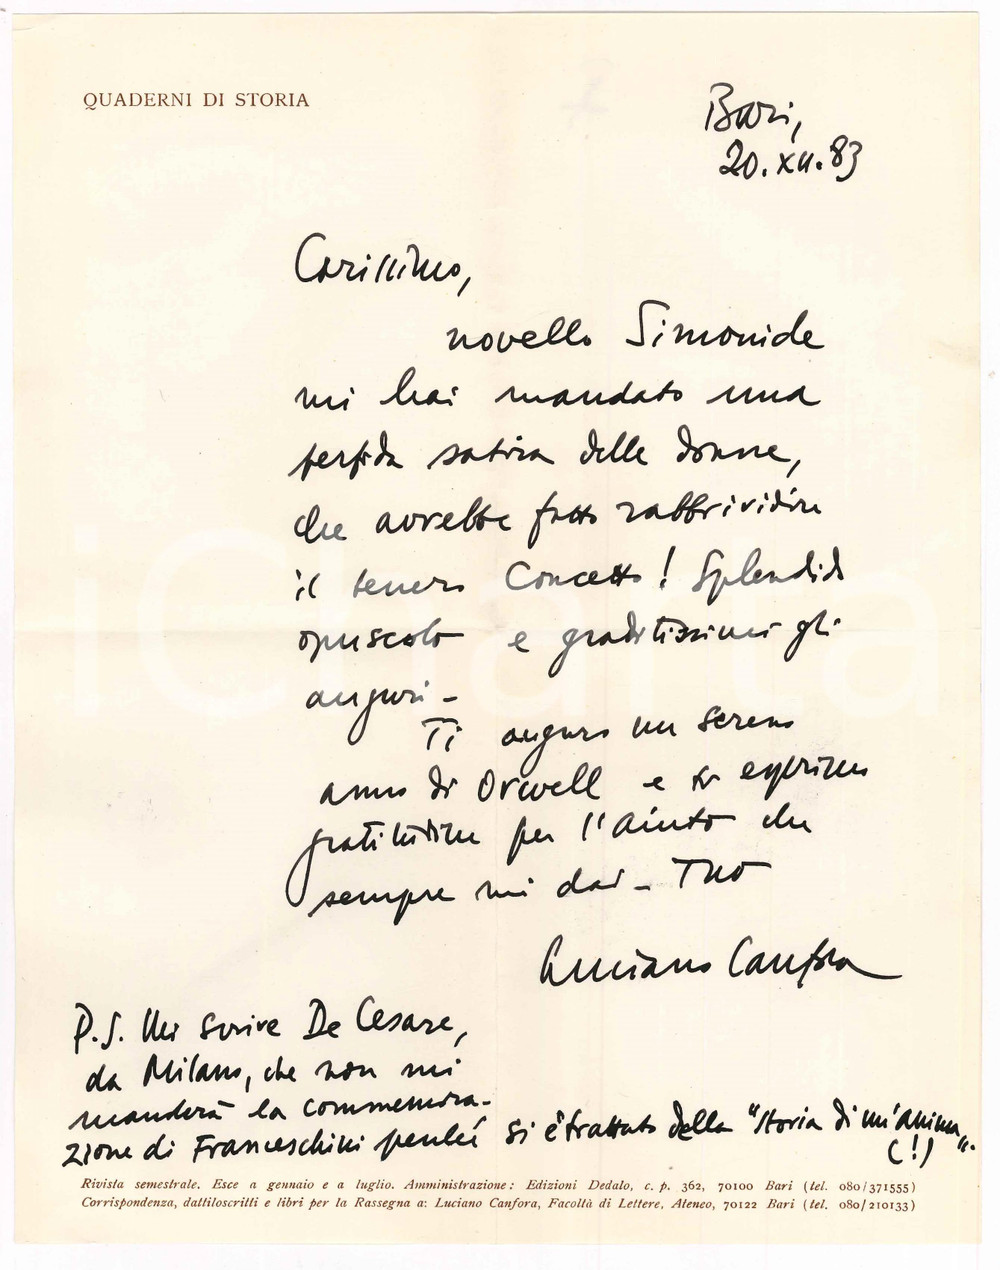 QUADERNI DI STORIA
Bari,
20.XII.83
Carissimo,
novello Simonide
mi hai mandato una
perfida satira delle donne,
che avrebbe fatto rabbrividire
il tenero Concetto! Splendido
opuscolo e graditissimi gli
auguri -
Ti auguro un sereno
anno di Orwell e ti esprimo
gratitudine per l'aiuto che
sempre mi dai - Tuo
Luciano Canfora
P.S. Mi scrive De Cesare,
da Milano, che non mi
manderà la commemora-
zione di Franceschini perché si è trattato della "storia di un'anima".
(!)
Rivista semestrale. Esce a gennaio e a luglio. Amministrazione: Edizioni Dedalo, c. p. 362, 70100 Bari (tel. 080/371555)
Corrispondenza, dattiloscritti e libri per la Rassegna a: Luciano Canfora, Facoltà di Lettere, Ateneo, 70122 Bari (tel. 080/210133)
iCharta